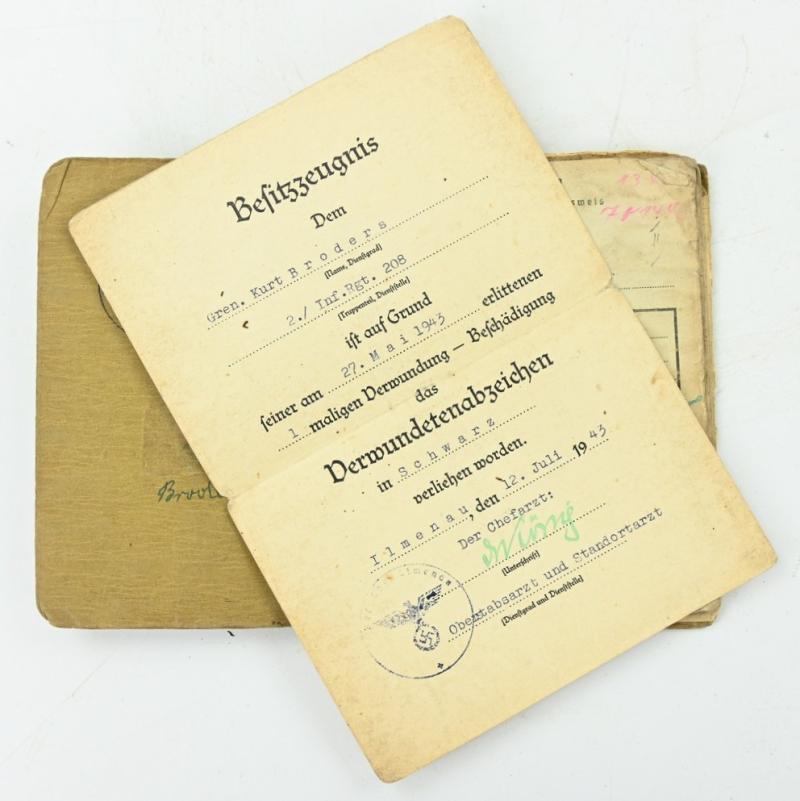 Besitzzeugnis
Dem
Gren. Kurt Broders
(Name, Dienstgrad)
2./ Inf.Rgt. 208
(Truppenteil, Dienststelle)
ist auf Grund
seiner am 27. Mai 1943 erlittenen
1 maligen Verwundung – Beschädigung
das
Verwundetenabzeichen
in Schwarz
verliehen worden.
Ilmenau, den 12. Juli 1943
Der Chefarzt:
(Unterschrift)
Oberstabsarzt und Standortarzt
(Dienstgrad und Dienststelle)